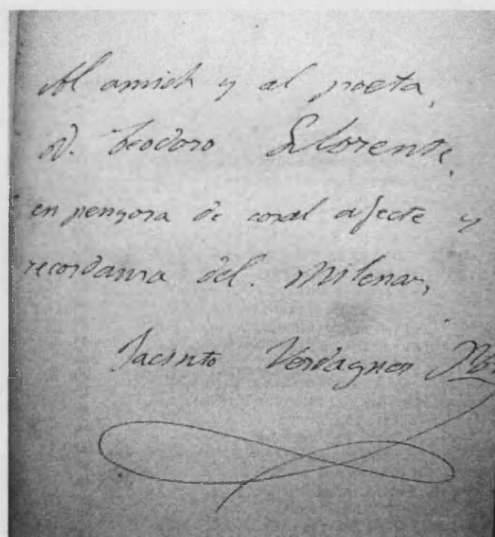 Al amich y al poeta,
D. Teodoro Llorente,
en penyora de coral afecte y
recordansa del Milenar,
Jacinto Verdaguer Pbre